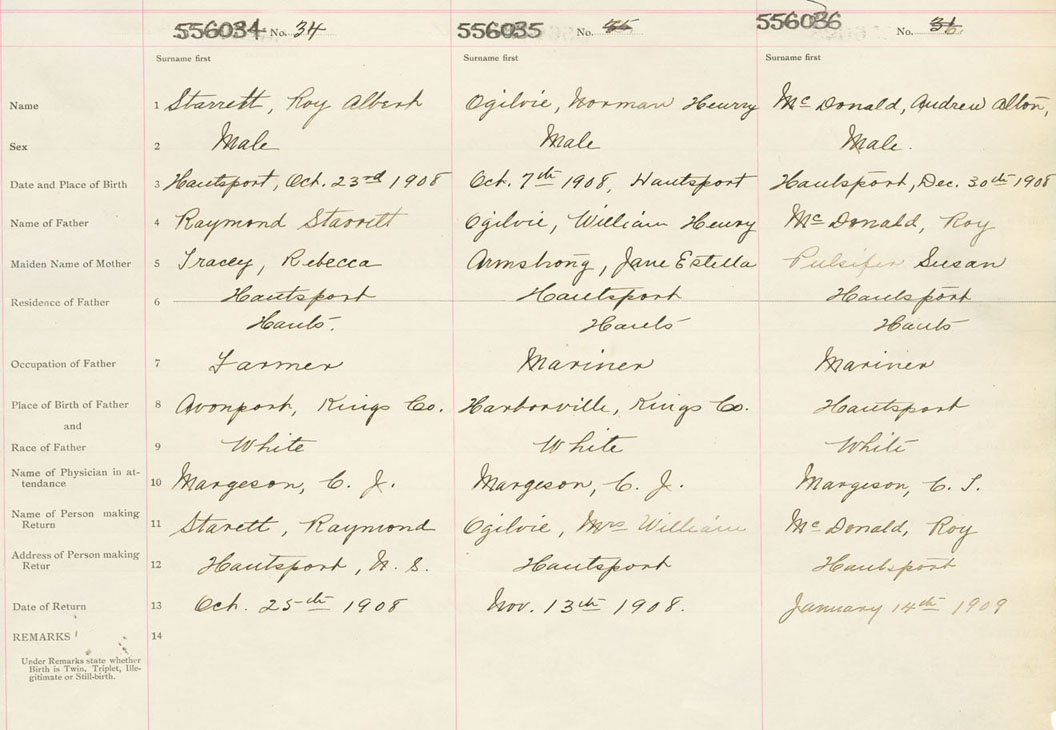 556034 No. 34 556035 No. 35 556036 No. 36
Surname first Surname first Surname first
Name 1 Starrett, Roy Albert Ogilvie, Norman Henry Mc Donald, Andrew Alton,
Sex 2 Male Male Male.
Date and Place of Birth 3 Hantsport, Oct. 23rd 1908 Oct. 7th 1908, Hantsport Hantsport, Dec. 30th 1908
Name of Father 4 Raymond Starrett Ogilvie, William Henry Mc Donald, Roy
Maiden Name of Mother 5 Tracey, Rebecca Armstrong, Jane Estella Pulsifer Susan
Residence of Father 6 Hantsport Hantsport Hantsport
Hants. Hants Hants
Occupation of Father 7 Farmer Mariner Mariner
Place of Birth of Father 8 Avonport, Kings Co. Harborville, Kings Co. Hantsport
and
Race of Father 9 White White White
Name of Physician in at-
tendance 10 Margeson, C. J. Margeson, C. J. Margeson, C. J.
Name of Person making
Return 11 Starett, Raymond Ogilvie, Mrs William Mc Donald, Roy
Address of Person making
Retur 12 Hantsport, N. S. Hantsport Hantsport
Date of Return 13 Oct. 25th 1908 Nov. 13th 1908. January 14th 1909
REMARKS 14
Under Remarks state whether
Birth is Twin, Triplet, Ille-
gitimate or Still-birth.